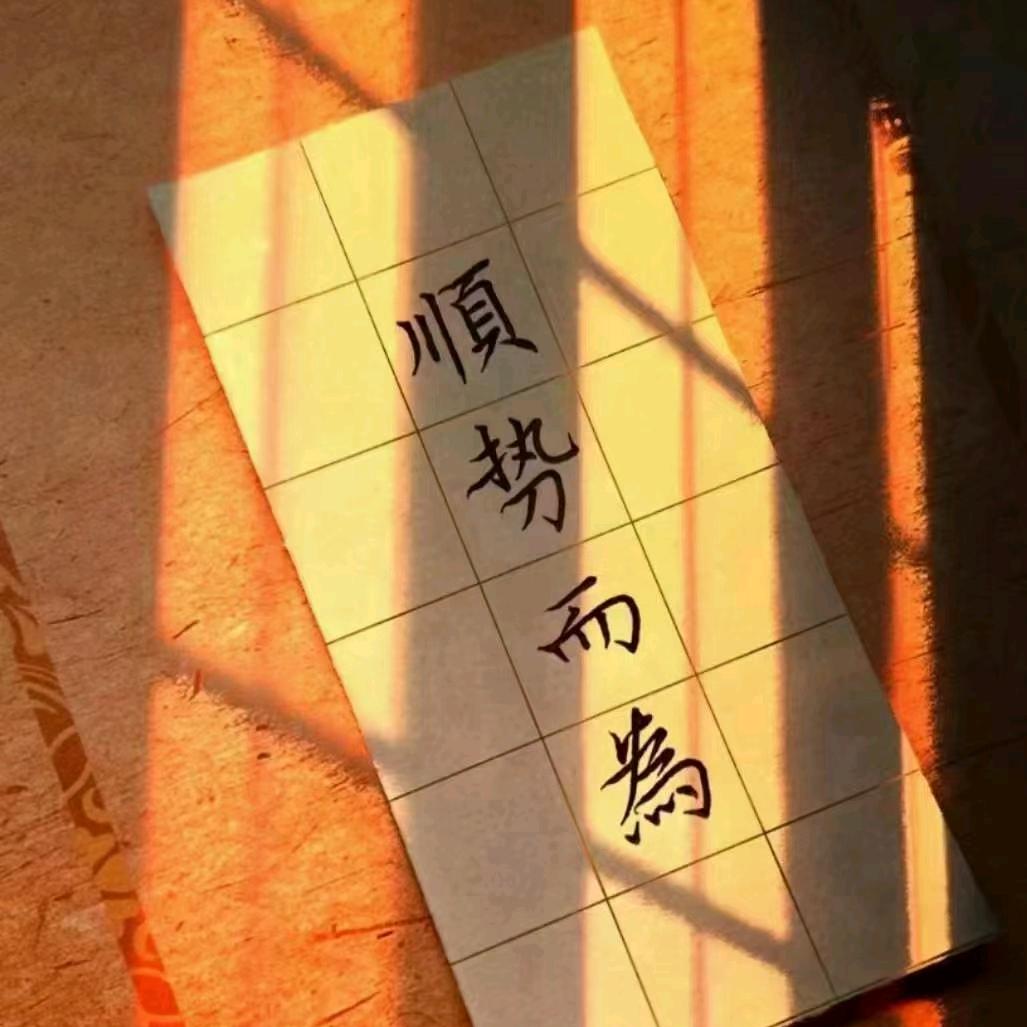 順势而為